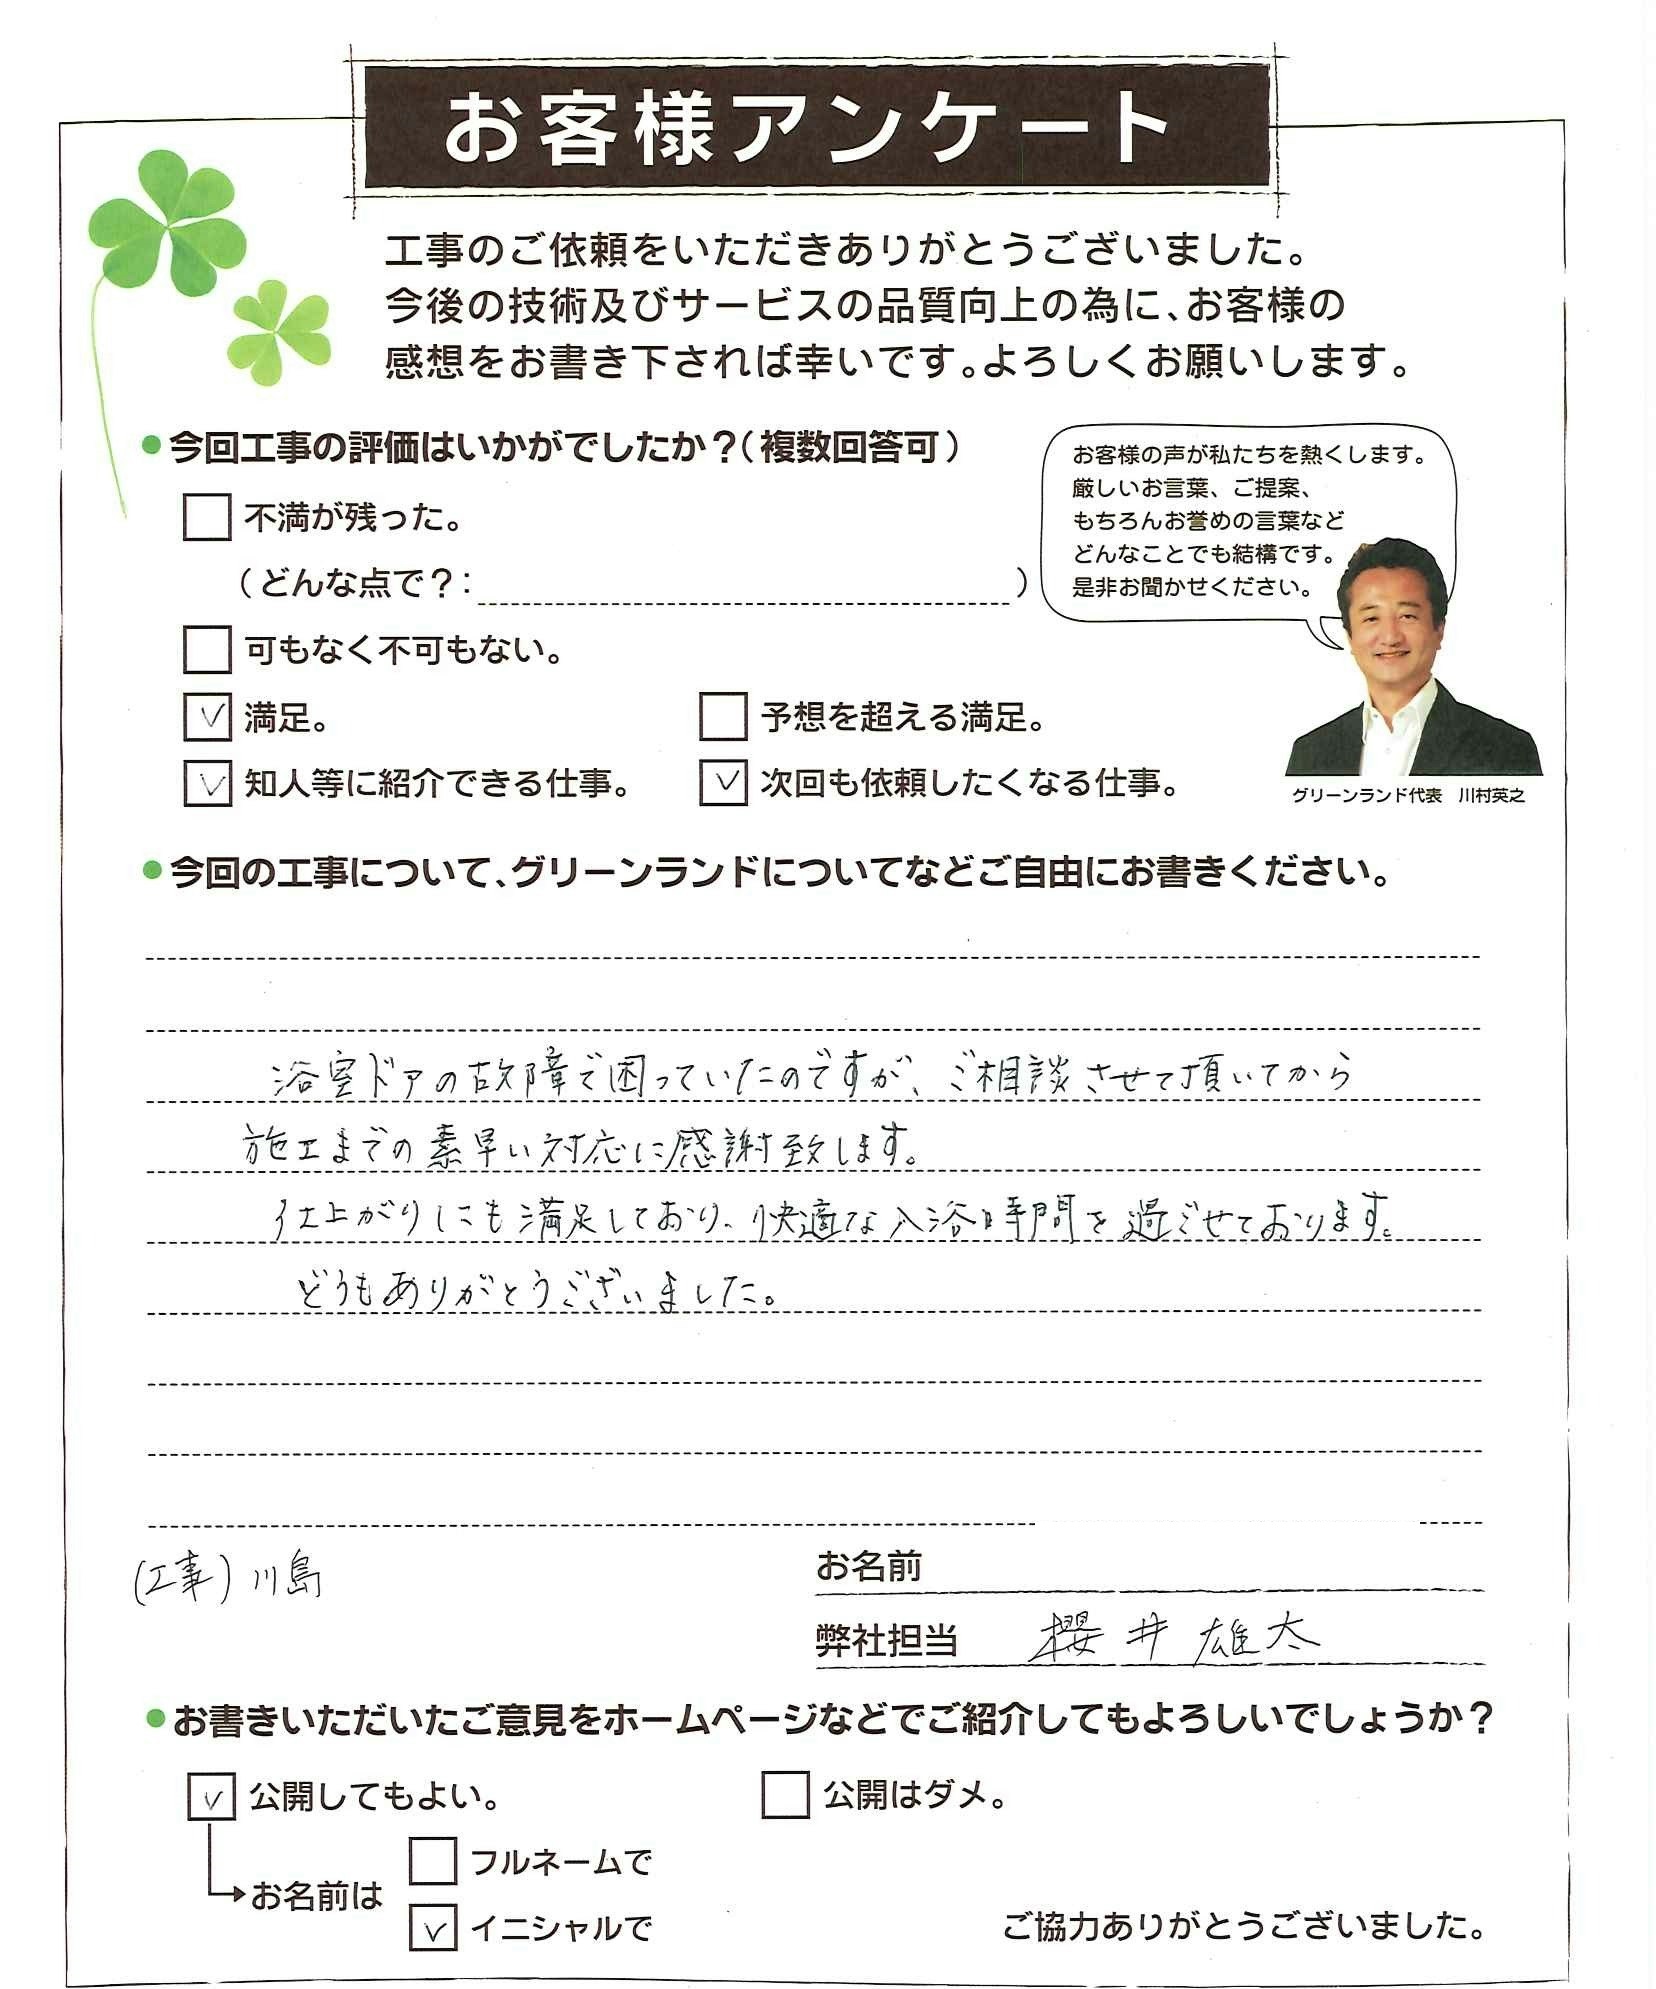 お客様アンケート
工事のご依頼をいただきありがとうございました。
今後の技術及びサービスの品質向上の為に、お客様の
感想をお書き下されば幸いです。よろしくお願いします。
●今回工事の評価はいかがでしたか？（複数回答可）
お客様の声が私たちを熱くします。
厳しいお言葉、ご提案、
もちろんお誉めの言葉など
どんなことでも結構です。
是非お聞かせください。
不満が残った。
（どんな点で？：　）
可もなく不可もない。
満足。
予想を超える満足。
知人等に紹介できる仕事。
次回も依頼したくなる仕事。
グリーンランド代表　川村英之
●今回の工事について、グリーンランドについてなどご自由にお書きください。
浴室ドアの故障で困っていたのですが、ご相談させて頂いてから
施工までの素早い対応に感謝致します。
仕上がりにも満足しており、快適な入浴時間を過ごせております。
どうもありがとうございました。
(工事) 川島
お名前
弊社担当　櫻井 雄太
●お書きいただいたご意見をホームページなどでご紹介してもよろしいでしょうか？
公開してもよい。
公開はダメ。
お名前は
フルネームで
イニシャルで
ご協力ありがとうございました。